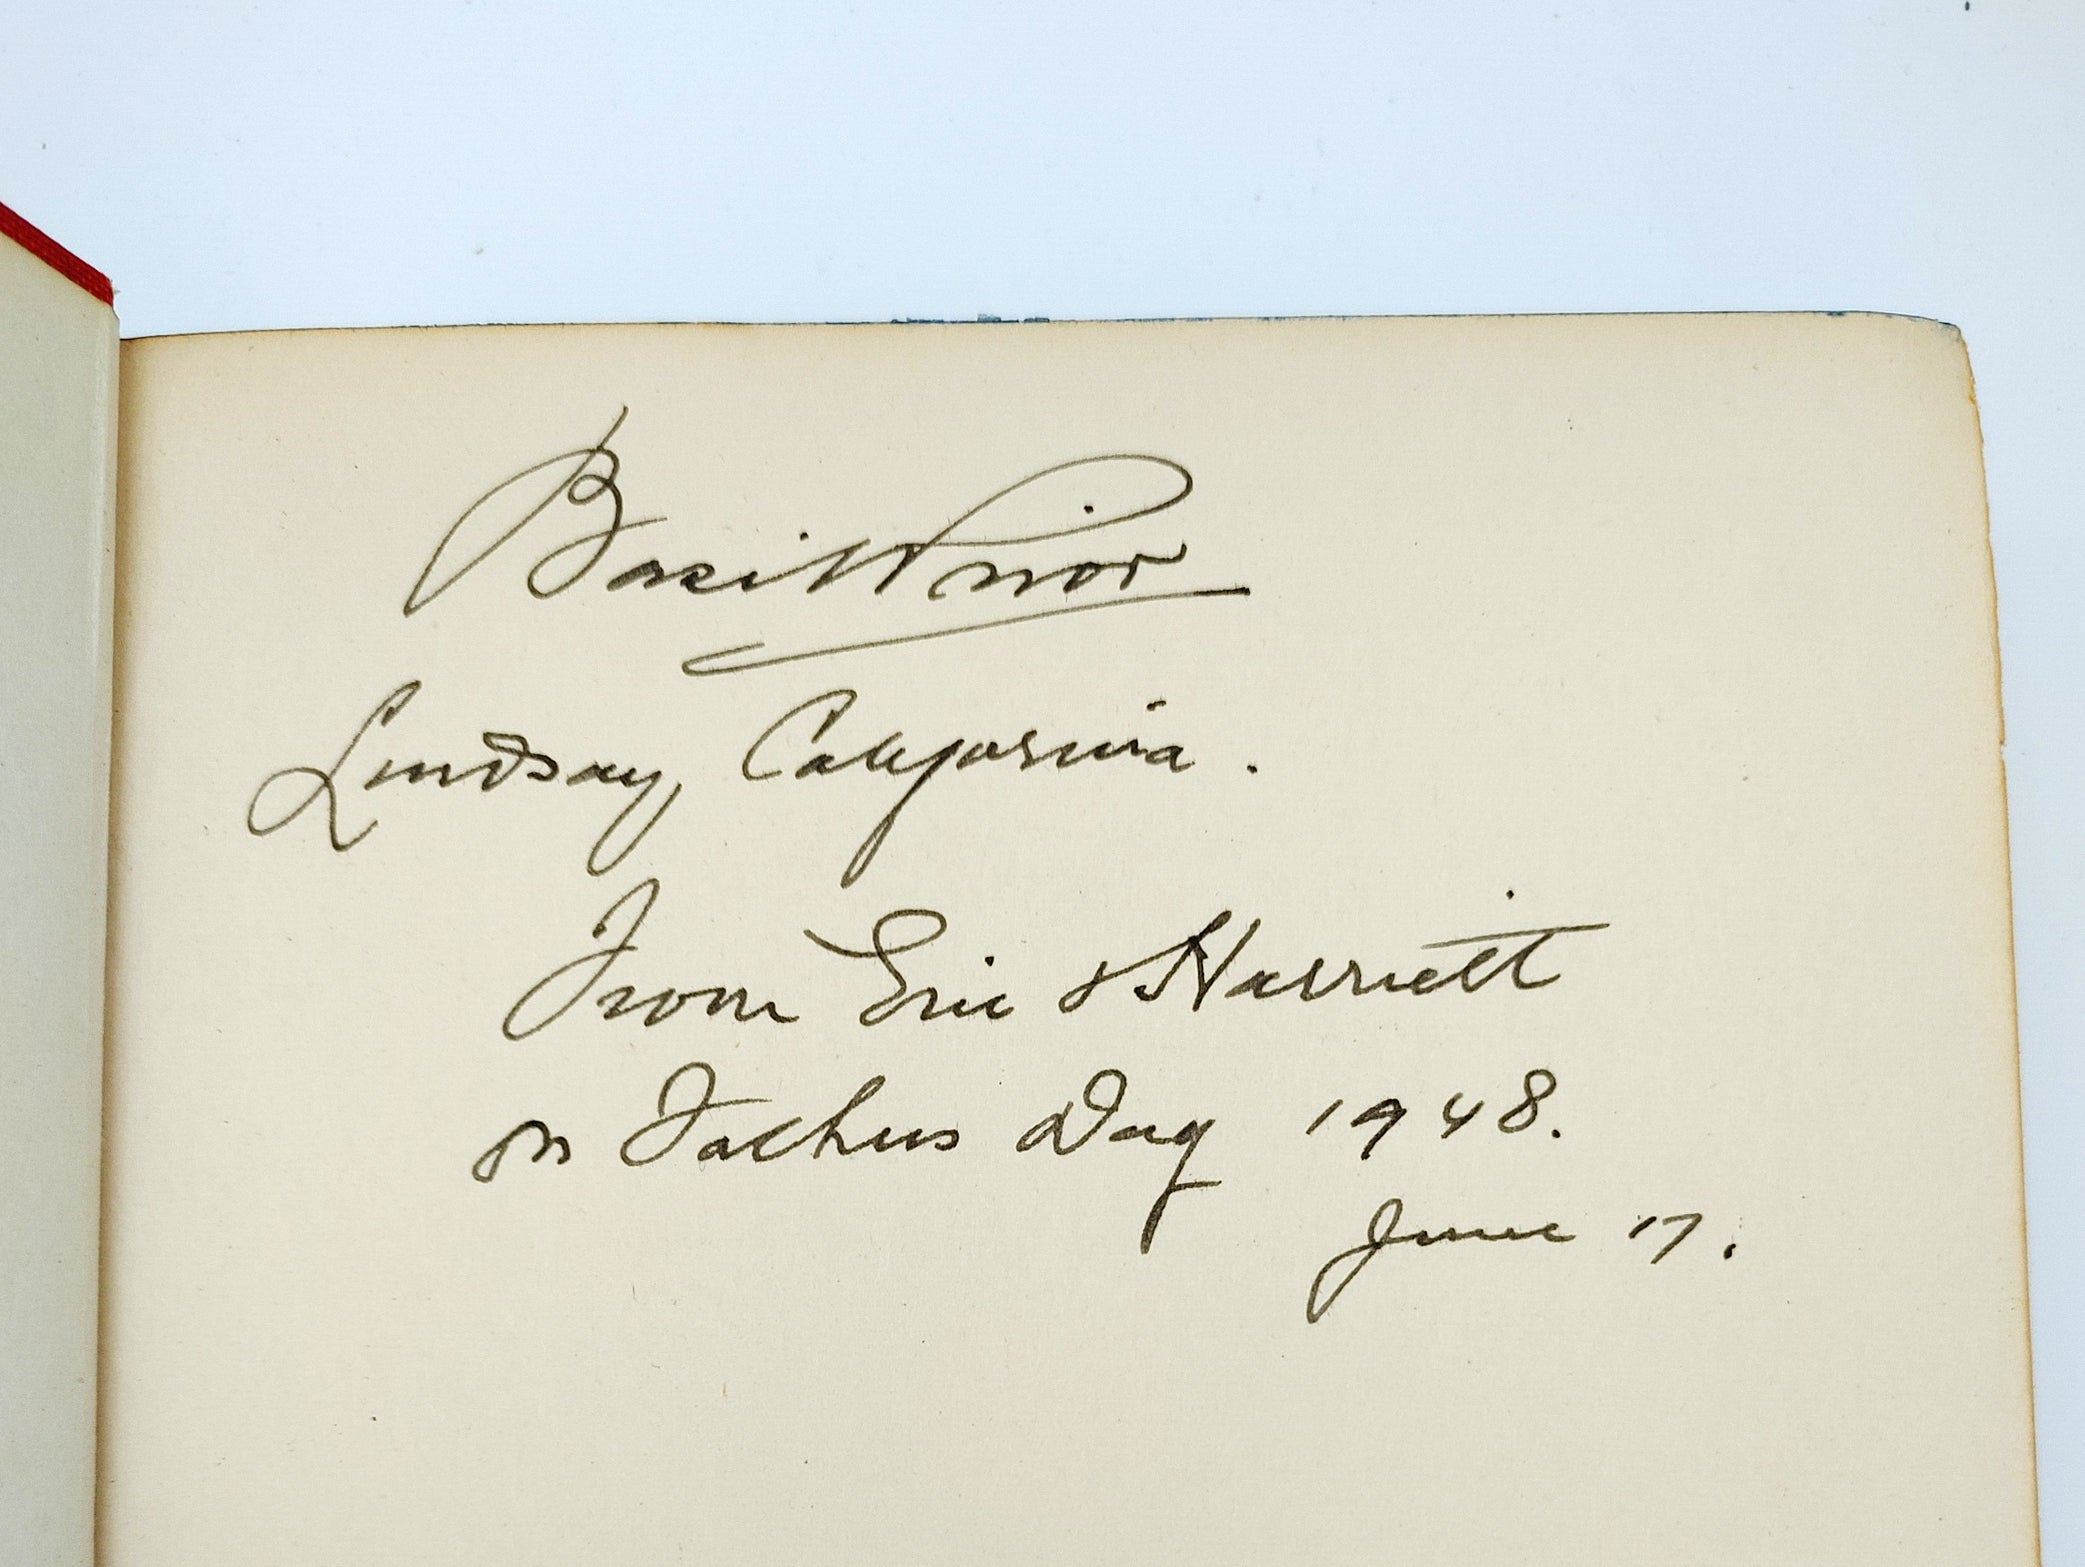 Basil Prior
Lindsay, California.
From Eric & Harriett
on Fathers Day 1948.
June 17.